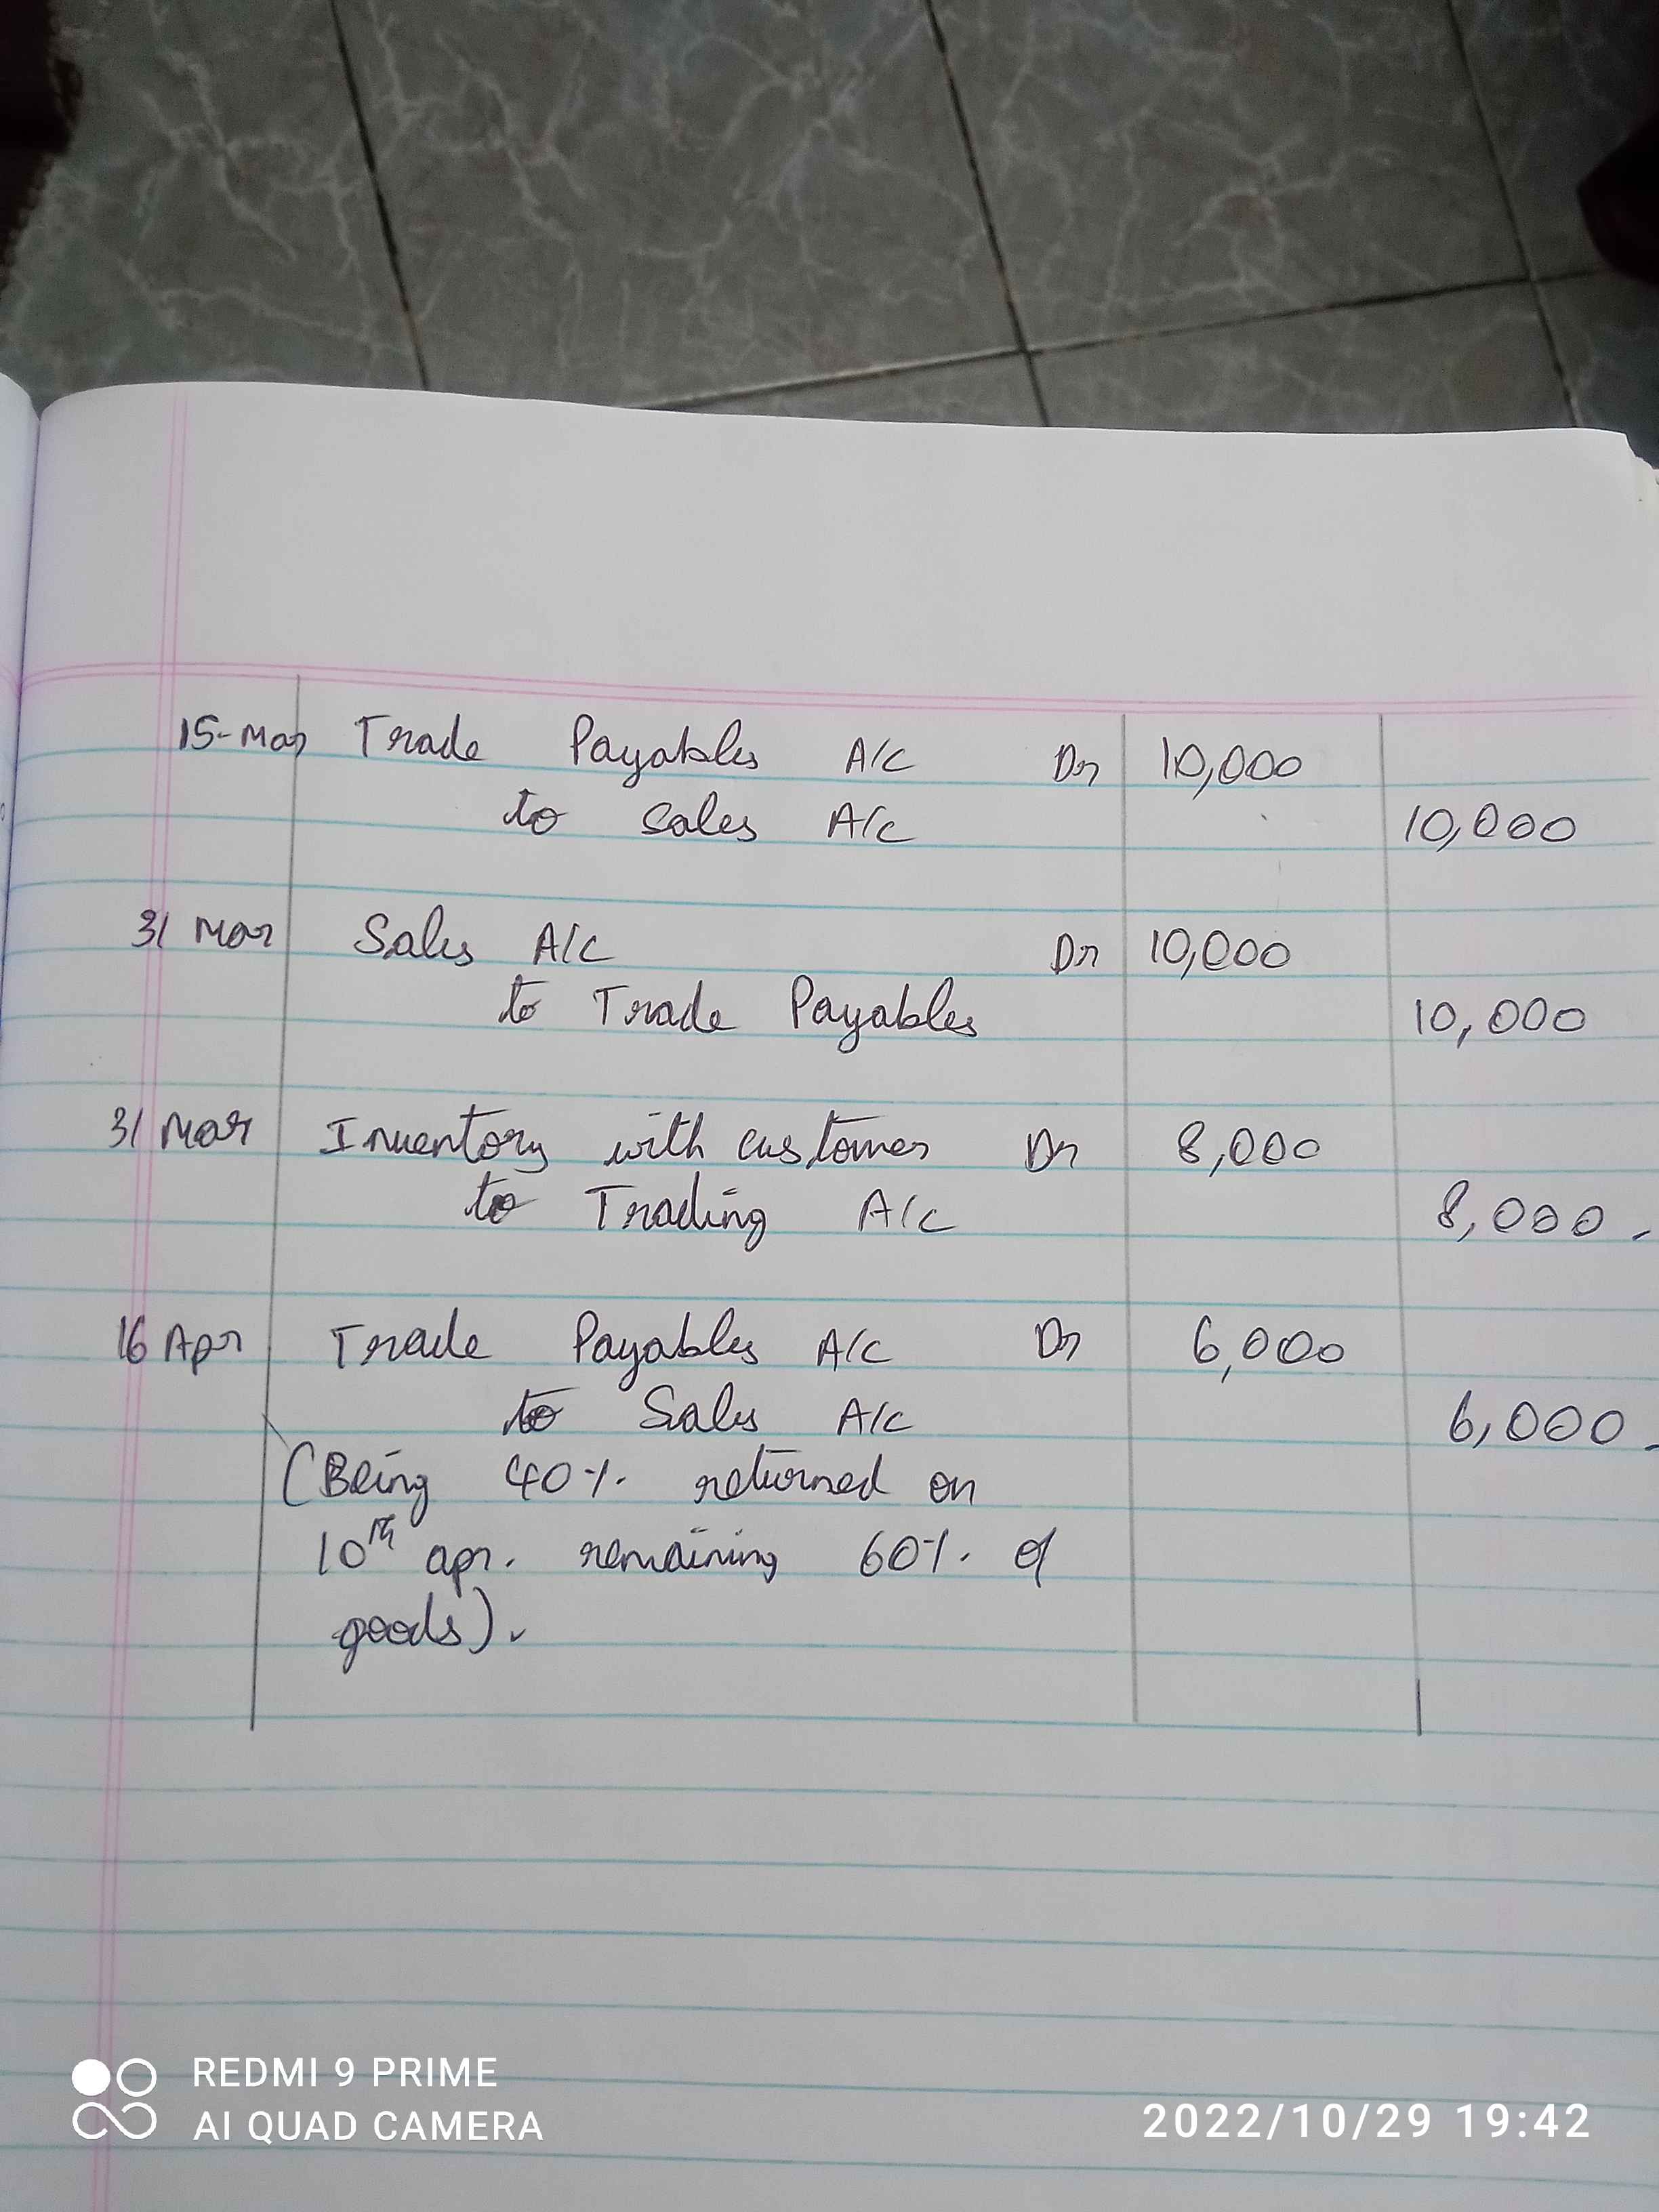 15-Mar Trade Payables A/C Dr 10,000
to sales A/C 10,000
31 Mar Sales A/C Dr 10,000
to Trade Payables 10,000
31 Mar Inventory with customer Dr 8,000
to Trading A/C 8,000
16 Apr Trade Payables A/C Dr 6,000
to Sales A/C 6,000
(Being 40% returned on
10th apr. remaining 60% of
goods).
REDMI 9 PRIME
AI QUAD CAMERA
2022/10/29 19:42